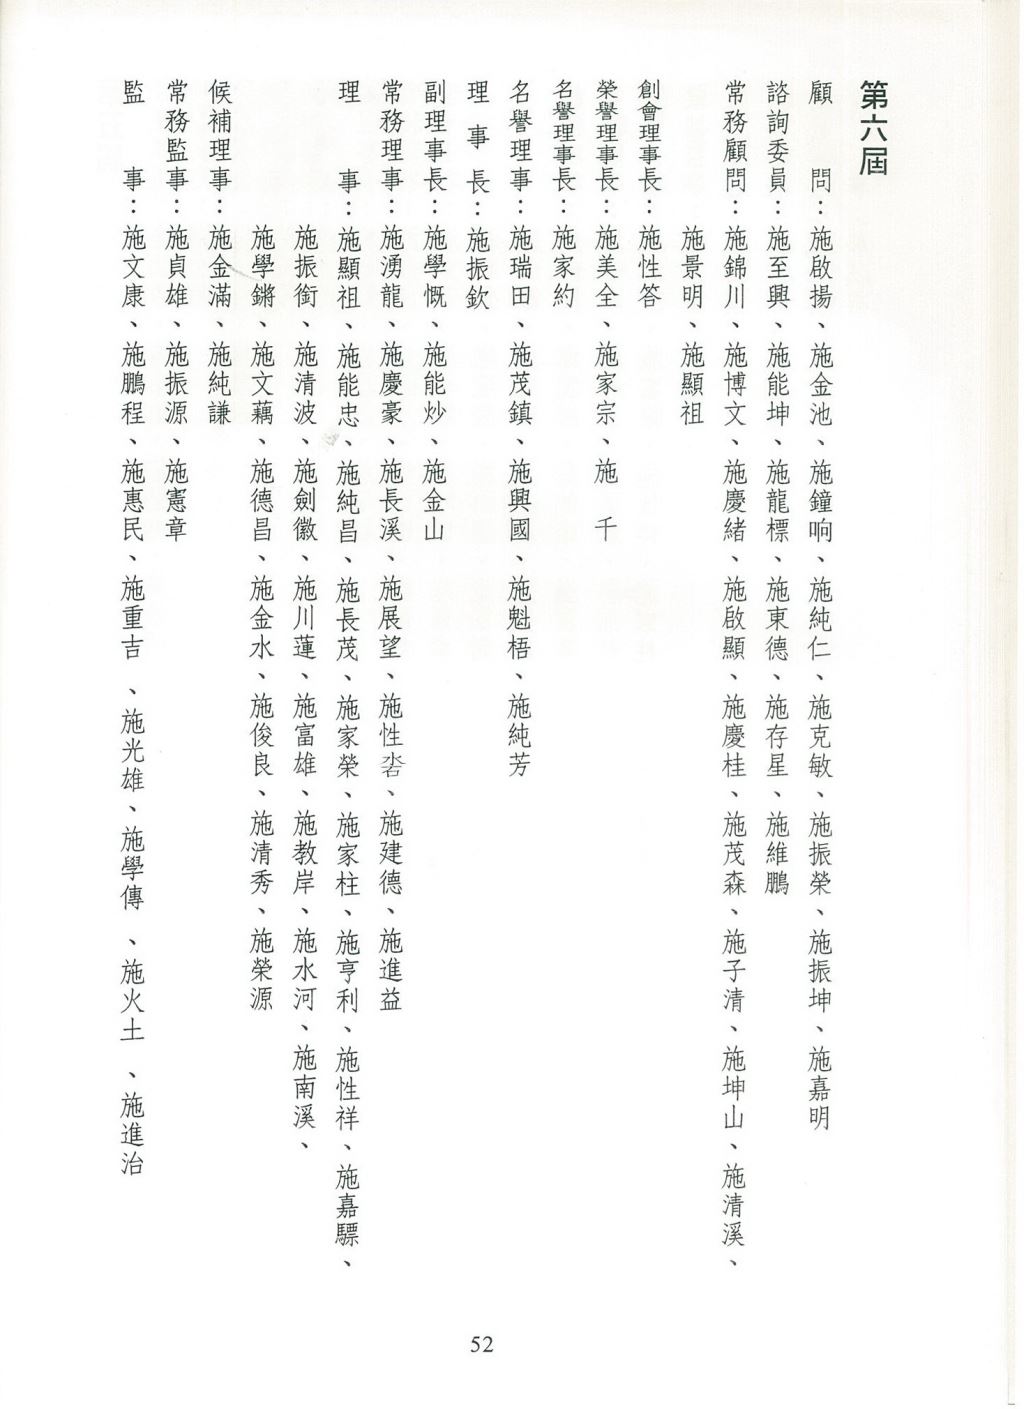 第六屆
顧　　問：施啟揚、施金池、施鐘响、施純仁、施克敏、施振榮、施振坤、施嘉明
諮詢委員：施至興、施能坤、施龍標、施東德、施存星、施維鵬
常務顧問：施錦川、施博文、施慶緒、施啟顯、施慶桂、施茂森、施子清、施坤山、施清溪、
施景明、施顯祖
創會理事長：施性答
榮譽理事長：施美全、施家宗、施　千
名譽理事長：施家約
名譽理事：施瑞田、施茂鎮、施興國、施魁梧、施純芳
理事長：施振欽
副理事長：施學慨、施能炒、施金山
常務理事：施湧龍、施慶豪、施長溪、施展望、施性沯、施建德、施進益
理　　事：施顯祖、施能忠、施純昌、施長茂、施家榮、施家柱、施亨利、施性祥、施嘉驃、
施振銜、施清波、施劍徽、施川蓮、施富雄、施教岸、施水河、施南溪、
施學鏘、施文藕、施德昌、施金水、施俊良、施清秀、施榮源
候補理事：施金滿、施純謙
常務監事：施貞雄、施振源、施憲章
監　　事：施文康、施鵬程、施惠民、施重吉、施光雄、施學傳、施火土、施進治
52